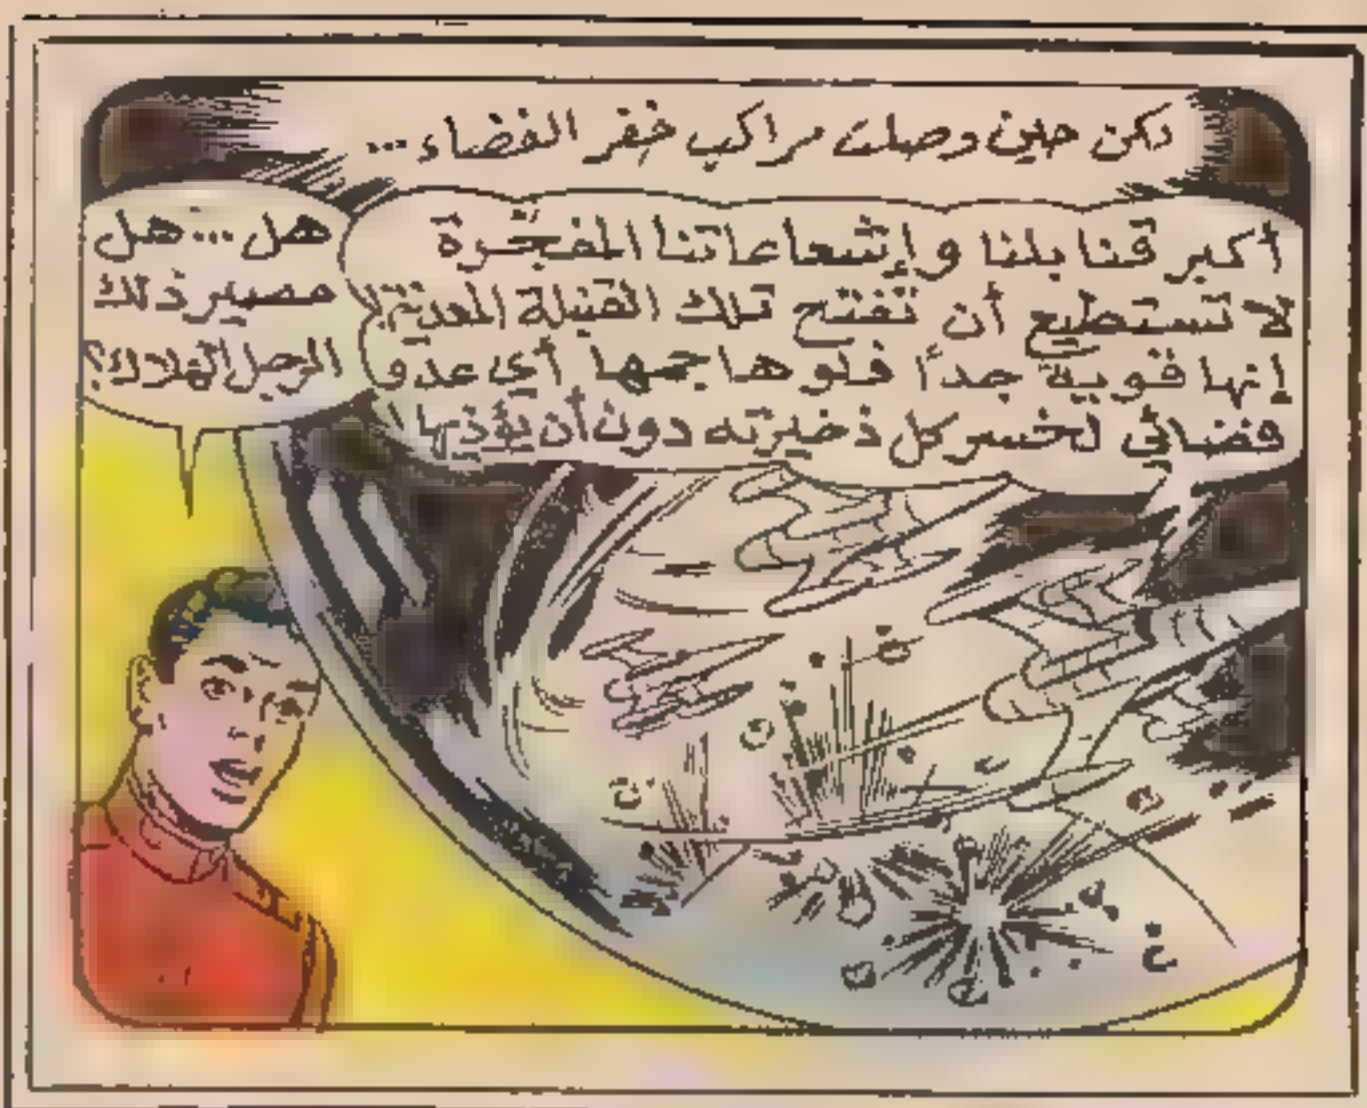 لكن حين وصلت مراكب خفر الفضاء...
أكبر قنابلنا وإشعاعاتنا المفجّرة
لا تستطيع أن تفتح تلك القنبلة المعدنية!
إنها قوية جداً فلو هاجمها أي عدو
فضائي لخسر كل ذخيرته دون أن يؤذيها!
هل... هل
مصير ذلك
الرجل الهلاك؟